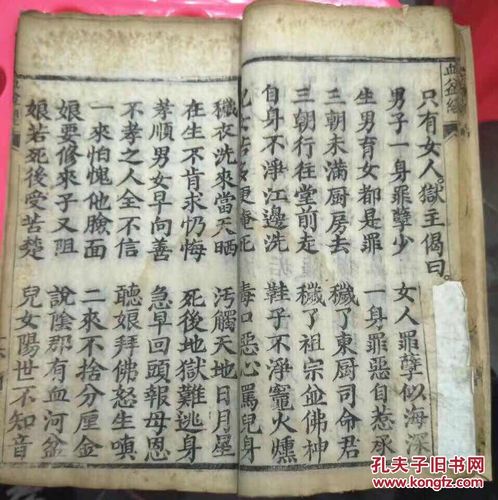 血盆經
只有女人。獄主偈曰。
男子一身罪孽少 女人罪孽似海深
生男育女都是罪 一身罪惡自惹承
三朝未滿厨房去 穢了東厨司命君
三朝行往堂前走 穢了祖宗並佛神
自身不淨江邊洗 鞋子不淨竈火燻
毒口惡心罵兒身
穢衣洗來當天晒 汚觸天地日月星
在生不肯求忏悔 死後地獄難逃身
孝順男女早向善 急早回頭報母恩
不孝之人全不信 聽娘拜佛怒生嗔
一來怕愧他臉面 二來不捨分厘金
娘要修來子又阻 說陰那有血河盆
娘若死後受苦楚 兒女陽世不知音
孔夫子旧书网
www.kongfz.com